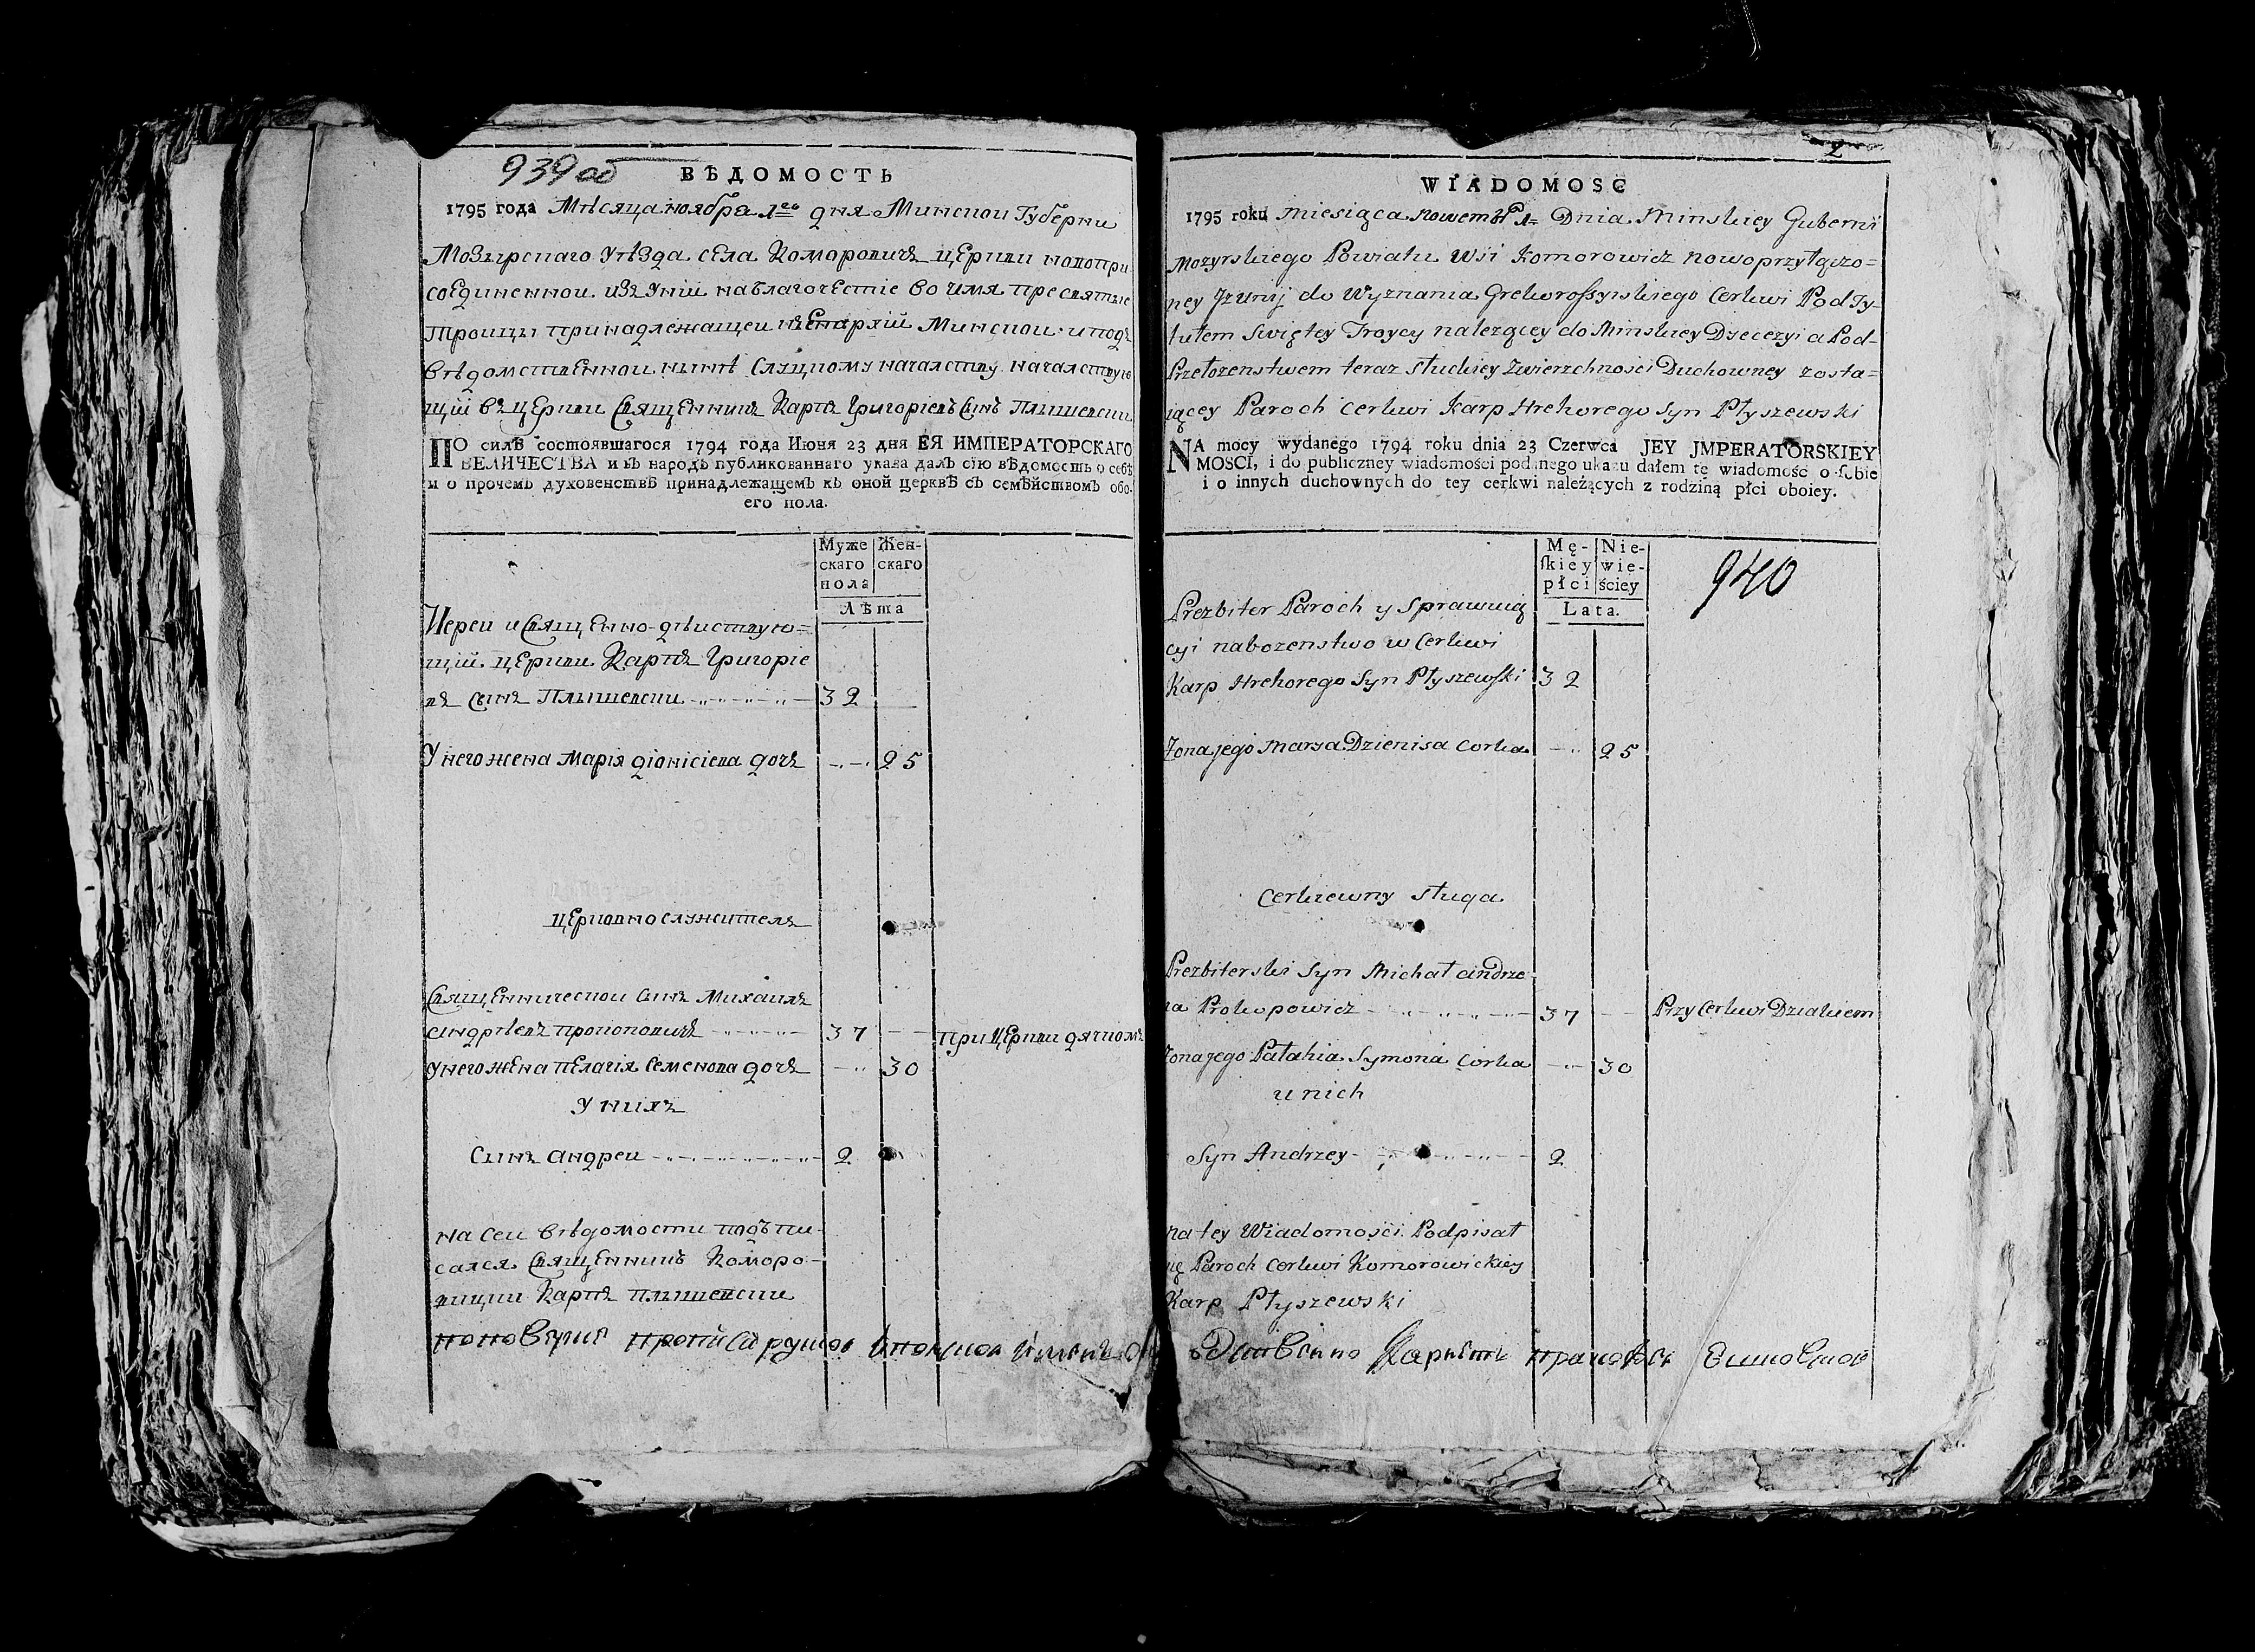 939 об
ВѢДОМОСТЬ
1795 года Мѣсяца ноября 1го дня Минской Губерни
Мозырскаго Уѣзда села Комаровичъ церкви новопри
соединенной изъ Уніи на благочестіе во имя пресвятые
Троицы принадлежащей къ Епархіи Минской и подъ
вѣдомственной нынѣ Слуцкому началству началствую
щій въ церкви Священникъ Карпъ Григоріевъ Сынъ Плышевски
ПО силѣ состоявшагося 1794 года Июня 23 дня ЕЯ ИМПЕРАТОРСКАГО
ВЕЛИЧЕСТВА и въ народъ публикованнаго указа далъ сію вѣдомость о себѣ
и о прочемъ духовенствѣ принадлежащемъ къ оной церквѣ съ семѣйствомъ обо-
его пола.
Муже Жен-
скаго скаго
пола
Лѣта
Иереи и Священно-дѣиствую=
щій церкви Карпъ Григоріе
въ Сынъ Плышевски 32
У него жена Марія Діонісіева дочъ 25
церковнослужителъ
Священнической Сынъ Михаилъ
Андрѣевъ Прокоповичъ 37 при церкви дячкомъ
У него жена Пелагія Семенова дочъ 30
У нихъ
Сынъ Андреи 2
На сеи вѣдомости подъпи-
сался Священникъ Коморо-
вицки Карпъ Плышевски
2
WIADOMOSC
1795 roku miesiąca Nowembr 1 Dnia Minskiey Guberni
Mozyrskiego Powiatu Wsi Komorowicz nowoprzyłączo=
ney Jzunij do Wyznania Grekorossyiskiego Cerkwi Pod Ty-
tułem Swiętey Troycy należącey do Minskiey Dyecezyi a Pod-
Przełożenstwem teraz Słuckiey Zwierzchnosci Duchowney zosta=
iącey Paroch Cerkwi Karp Hrehorego Syn Płyszewski
NA mocy wydanego 1794 roku dnia 23 Czerwca JEY JMPERATORSKIEY
MOSCI, i do publiczney wiadomości podanego ukazu dałem tę wiadomość o sobie
i o innych duchownych do tey cerkwi należących z rodziną płci oboiey.
Mę- Nie-
skiey wie-
płci ściey
Lata.
940
Prezbiter Paroch y Sprawuią
cyi nabozenstwo w Cerkwi
Karp Hrehorego Syn Płyszewski 32
Zona jego Marya Dzienisa Corka 25
Cerkiewny Sługa
Prezbiterski Syn Michał Andrze
ia Prokopowicz 37 Przy Cerkwi Dziakiem
Zona jego Pałahia Symona Corka 30
u nich
Syn Andrzey 2
na tey Wiadomości Podpisał
się Paroch Cerkwi Komorowickiey
Karp Płyszewski